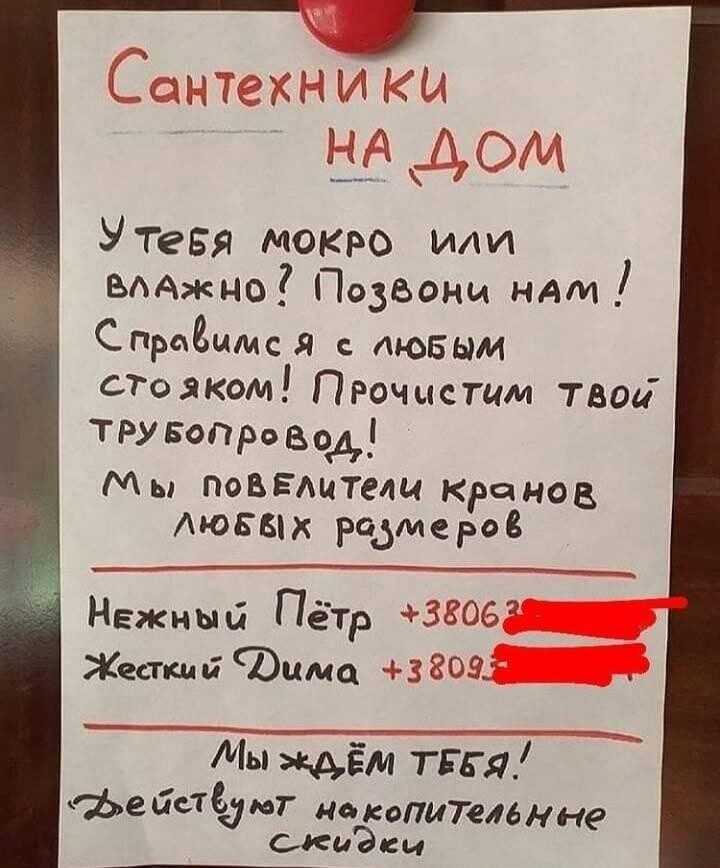 Сантехники
НА ДОМ
У тебя мокро или
влажно? Позвони нам!
Справимся с любым
стояком! Прочистим твой
трубопровод!
Мы повелители кранов
любых размеров
Нежный Пётр +3806
Жесткий Дима +3809
Мы ждём тебя!
Действуют накопительные
скидки